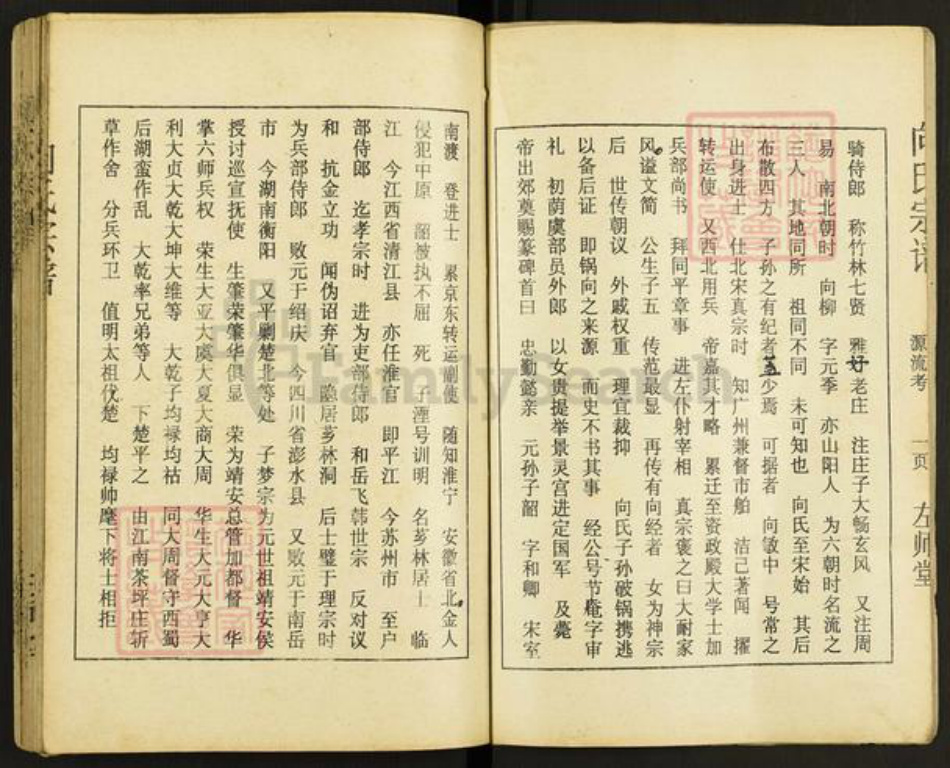 向氏宗谱 源流考 一页 左师堂
骑侍郎 称竹林七贤 雅好老庄 注庄子大畅玄风 又注周
易 南北朝时 向柳 字元季 亦山阳人 为六朝时名流之
三人 其地同所 祖同不同 未可知也 向氏至宋始 其后
布散四方 子孙之有纪者 少焉 可据者 向敏中 号常之
出身进士 仕北宋真宗时 知广州兼督市舶 洁己著闻 擢
转运使 又西北用兵 帝嘉其才略 累迁至资政殿大学士加
兵部尚书 拜同平章事 进左仆射宰相 真宗褒之曰大耐家
风 谥文简 公生子五 传范最显 再传有向经者 女为神宗
后 世传朝议 外戚权重 理宜裁抑 向氏子孙破锅携逃
以备后证 即锅向之来源 而史不书其事 经公号节庵字审
礼 初荫虞部员外郎 以女贵提举景灵宫进定国军 及薨
帝出郊奠赐篆碑首曰 忠勤懿亲 元孙子韶 字和卿 宋室
南渡 登进士 累京东转运副使 随知淮宁 安徽省北金人
侵犯中原 韶被执不屈 死 子湮号训明 名芗林居士 临
江 今江西省清江县 亦任淮官 即平江 今苏州市 至户
部侍郎 迄孝宗时 进为吏部侍郎 和岳飞韩世宗 反对议
和 抗金立功 闻伪诏弃官 隐居芗林洞 后士璧于理宗时
为兵部侍郎 败元于绍庆 今四川省澎水县 又败元于南岳
市 今湖南衡阳 又平剿楚北等处 子梦宗为元世祖靖安侯
授讨巡宣抚使 生肇荣肇华俱显 荣为靖安总管加都督 华
掌六师兵权 荣生大亚大虞大夏大商大周 华生大元大亨大
利大贞大乾大坤大维等 大乾子均禄均祜 同大周督守西蜀
后湖蛮作乱 大乾率兄弟等人 下楚平之 由江南茶坪庄斩
草作舍 分兵环卫 值明太祖伐楚 均禄帅麾下将士相拒
FamilySearch